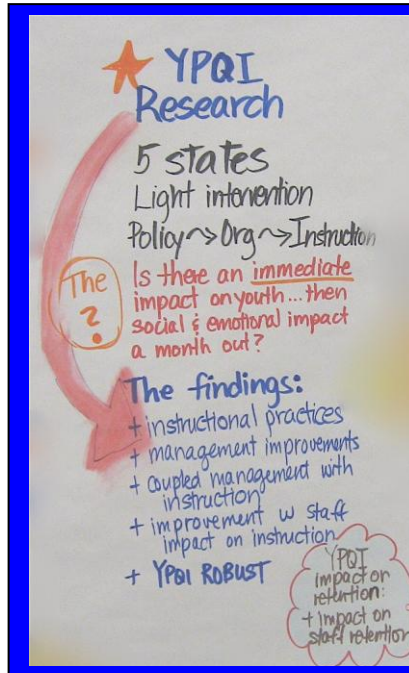 YPQI
Research
5 states
Light intervention
Policy → Org → Instruction
The
?
Is there an immediate
impact on youth... then
social & emotional impact
a month out?
The findings:
+ instructional practices
+ management improvements
+ coupled management with
instruction
+ improvement w staff
impact on instruction
+ YPQI ROBUST
YPQI
impact on
retention:
+ impact on
staff retention